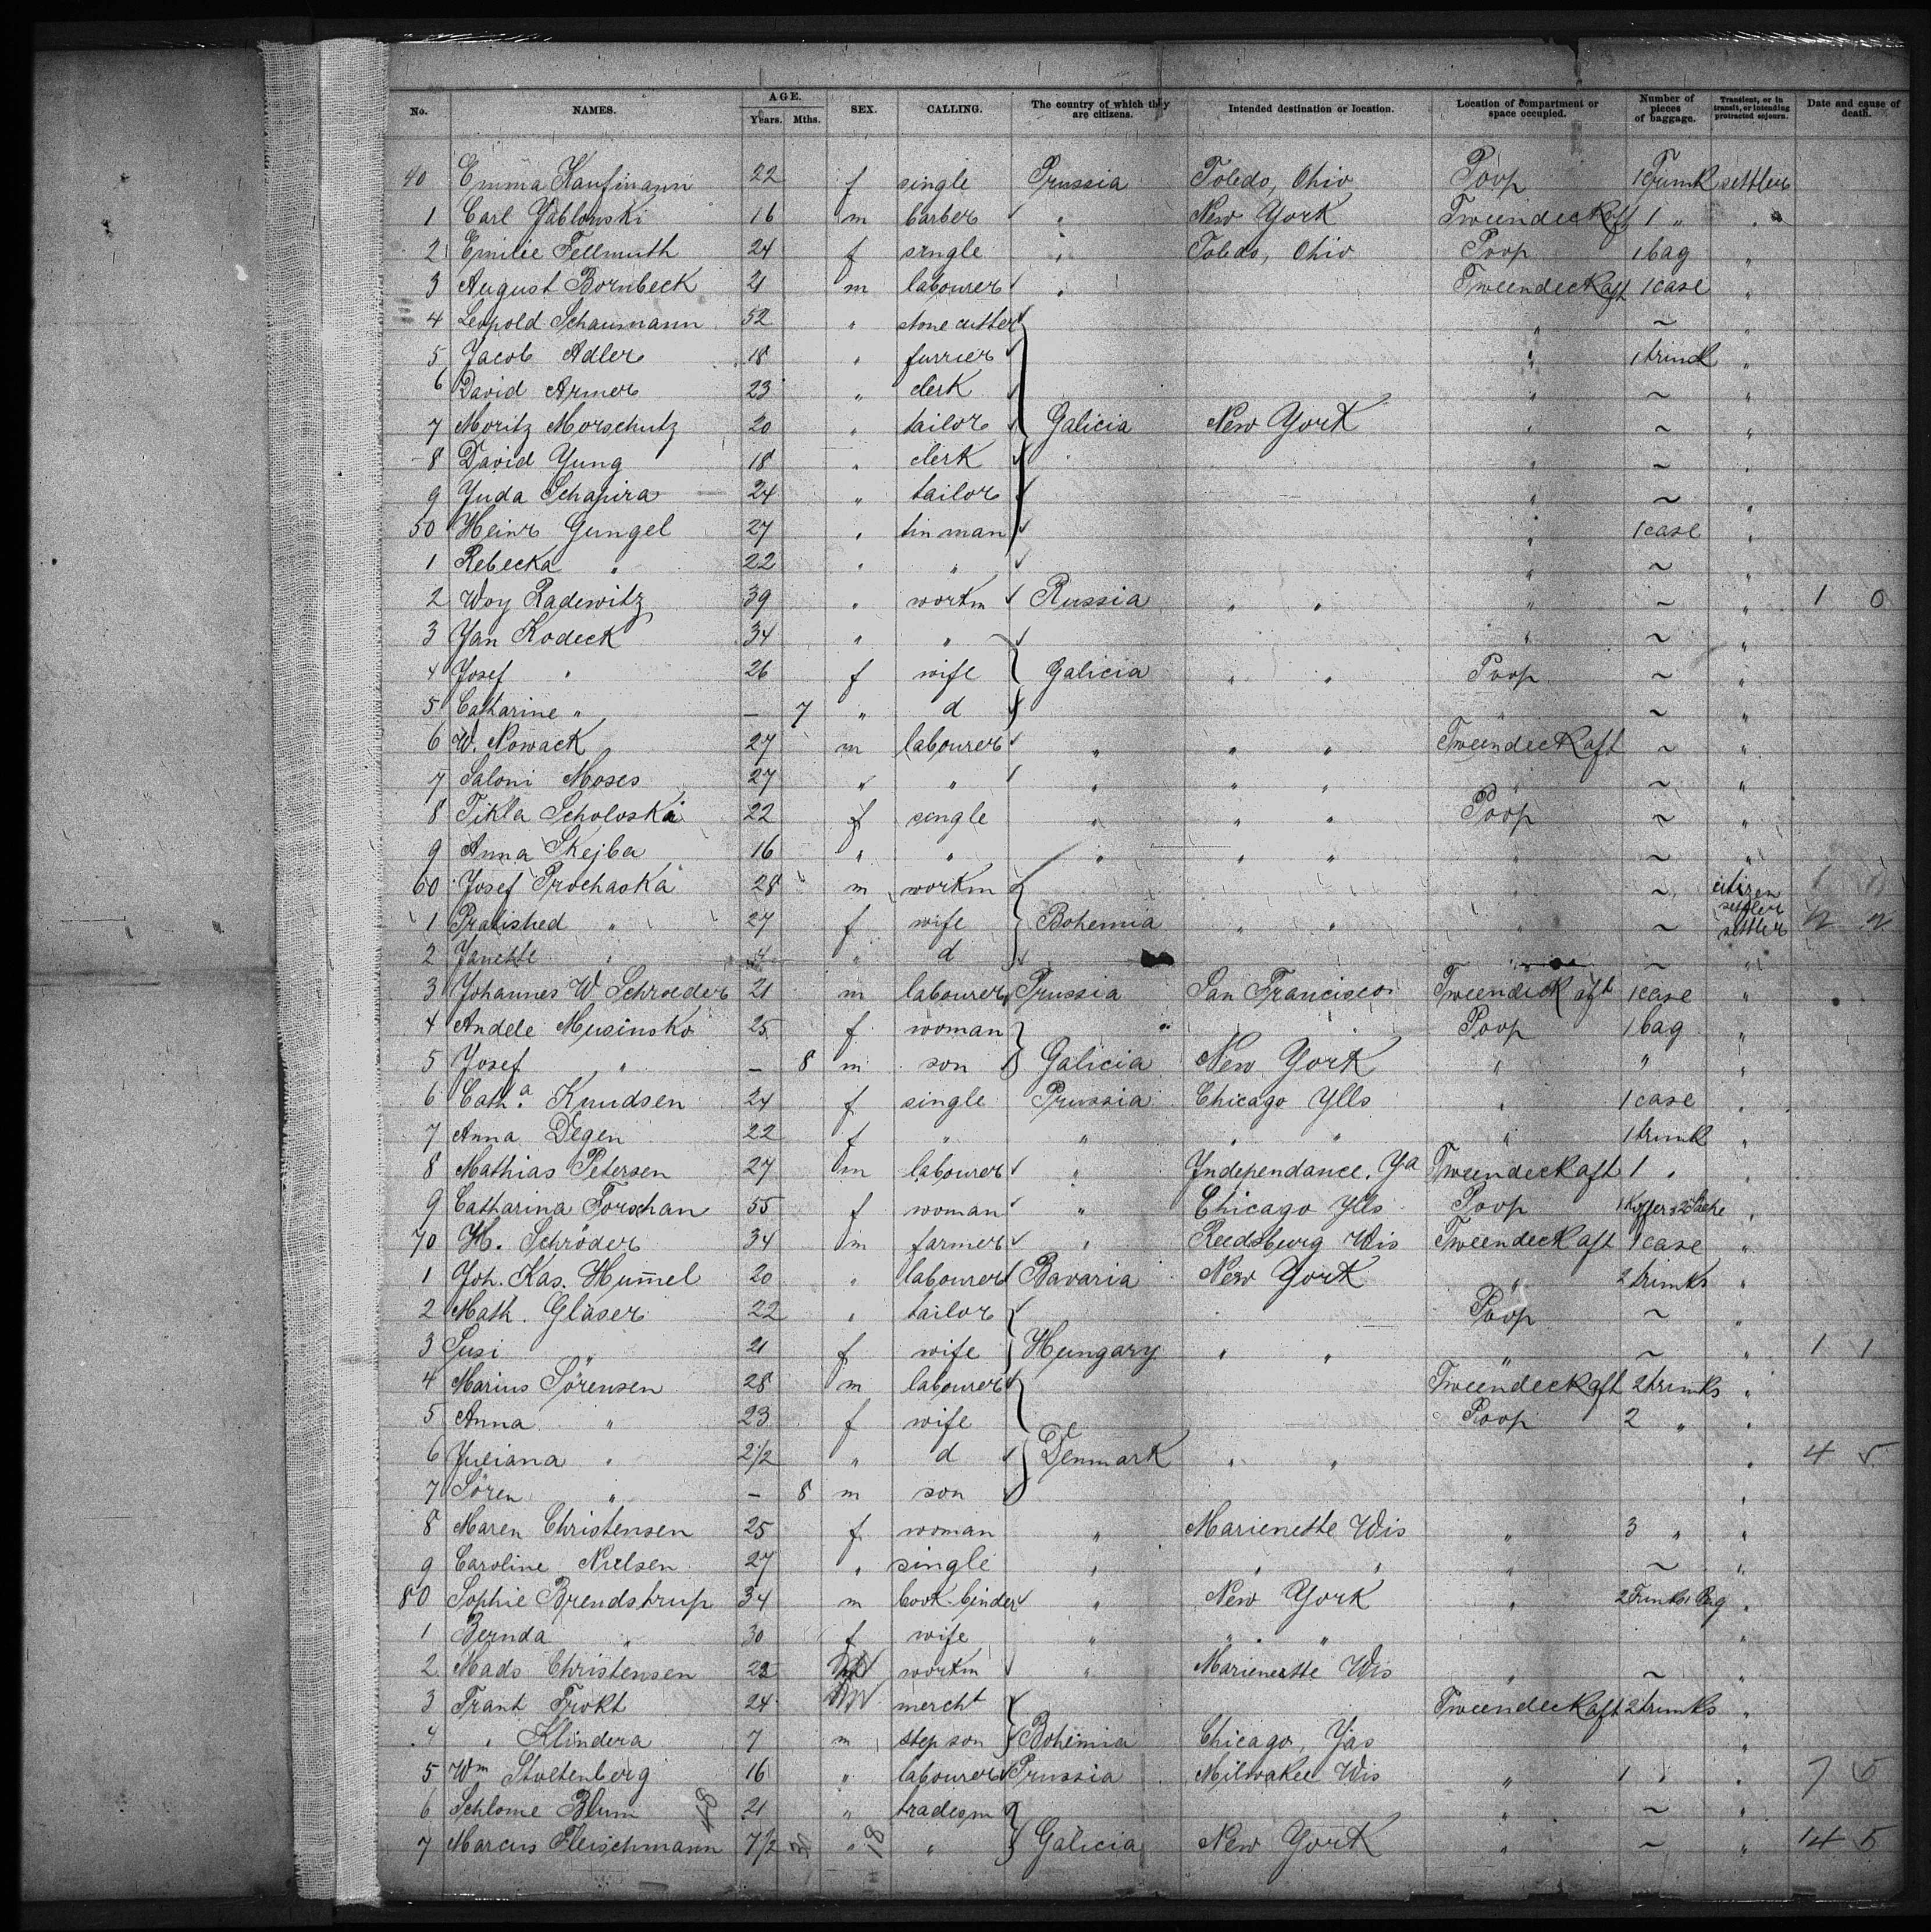 No. NAMES. AGE. Years. Mths. SEX. CALLING. The country of which they are citizens. Intended destination or location. Location of compartment or space occupied. Number of pieces of baggage. Transient, or in transit, or intending protracted sojourn. Date and cause of death.
40 Emma Kaufmann 22 f single Prussia Toledo, Ohio Poop 1 Trunk settler
1 Carl Jablonski 16 m barber " New York Tweendeck aft 1 " "
2 Emilie Fellmuth 24 f single " Toledo, Ohio Poop 1 bag "
3 August Bornbeck 21 m labourer " Tweendeck aft 1 case "
4 Leopold Schaumann 52 " stone cutter " ~ "
5 Jacob Adler 18 " furrier " 1 trunk "
6 David Armer 23 " clerk " ~ "
7 Moritz Morschutz 20 " tailor Galicia New York " ~ "
8 David Yung 18 " clerk " ~ "
9 Juda Schapira 24 " tailor " ~ "
50 Heinr Gungel 27 " tin man " 1 case "
1 Rebecka " 22 " " " ~ "
2 Woy Radewitz 39 " workm Russia " " " ~ " 1 0
3 Jan Kodeck 34 " " " ~ "
4 Josef " 26 f wife Galicia " " Poop ~ "
5 Catharine " — 7 " d " ~ "
6 W. Nowack 27 m labourer " " " Tweendeck aft ~ "
7 Saloni Moses 27 " " " " " " ~ "
8 Tikla Scholoska 22 f single " " " Poop ~ "
9 Anna Skejba 16 " " " " " " ~ "
60 Josef Prochaska 28 m workm " ~ citizen
settler
1 Pratished " 27 f wife Bohemia " " " ~ settler
2 Janette " 4 " d " ~ "
3 Johannes W Schroeder 21 m labourer Prussia San Francisco Tweendeck aft 1 case "
4 Andele Musinsko 25 f woman " Poop 1 bag "
5 Josef " — 8 m son Galicia New York " " "
6 Cath.a Knudsen 24 f single Prussia Chicago Ylls " 1 case "
7 Anna Degen 22 f " " " " " 1 trunk "
8 Mathias Petersen 27 m labourer " Independance. Ya Tweendeck aft 1 " "
9 Catharina Forschan 55 f woman " Chicago Ylls Poop 1 Koffer 2 Säcke "
70 H. Schröder 34 m farmer " Reedsburg Wis Tweendeck aft 1 case "
1 Joh. Kas. Hummel 20 " labourer Bavaria New York " 2 trunks "
2 Math. Gläser 22 " tailor Poop ~ "
3 Susi " 21 f wife Hungary " " " ~ " 1 1
4 Marius Sörensen 28 m labourer Tweendeck aft 2 trunks "
5 Anna " 23 f wife Poop 2 " "
6 Juliana " 2 1/2 " d Denmark " " " 4 5
7 Sören " — 8 m son "
8 Maren Christensen 25 f woman " Marienette Wis " 3 " "
9 Caroline Nielsen 27 " single " " " " ~ "
80 Sophie Brendstrup 34 m book-binder " New York " 2 Trunks 1 Bag "
1 Bernda " 30 f wife " " " "
2 Mads Christensen 22 m workm " Marienette Wis " ~ "
3 Frant Frokt 24 m mercht Tweendeck aft 2 trunks "
4 " Klindera 7 m step son Bohemia Chicago, Yas "
5 Wm Stoltenberg 16 " labourer Prussia Milwakee Wis " 1 " " 7 5
6 Schlome Blum 21 " tradesm " ~ "
7 Marcus Fleischmann 7 1/2 " " Galicia New York " ~ " 14 5
48 18